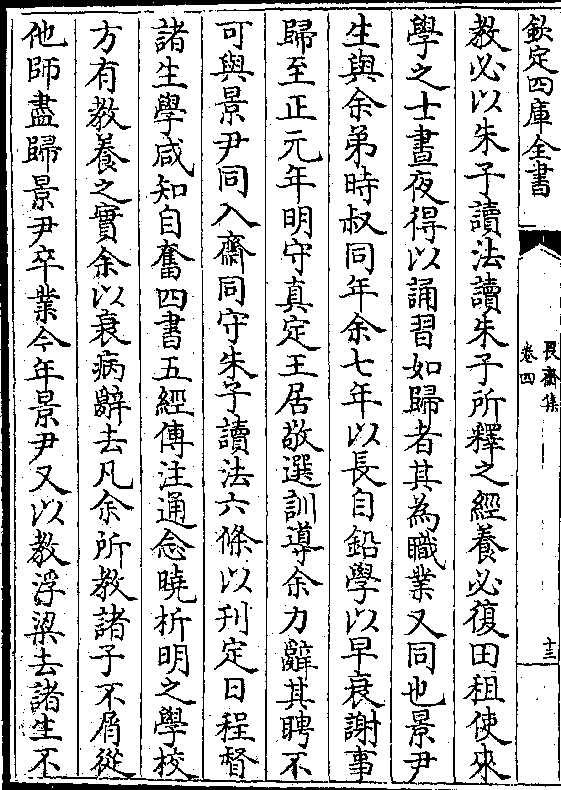 欽定四庫全書
畏齋集
卷四
十三
教必以朱子讀法讀朱子所釋之經養必復田租使來
學之士晝夜得以誦習如歸者其為職業又同也景尹
生與余弟時叔同年余七年以長自鉛學以早衰謝事
歸至正元年明守真定王居敬選訓導余力辭其聘不
可與景尹同入齋同守朱子讀法六條以刊定日程督
諸生學咸知自奮四書五經傳注通念曉析明之學校
方有教養之實余以衰病辭去凡余所教諸子不屑從
他師盡歸景尹卒業今年景尹又以教浮梁去諸生不